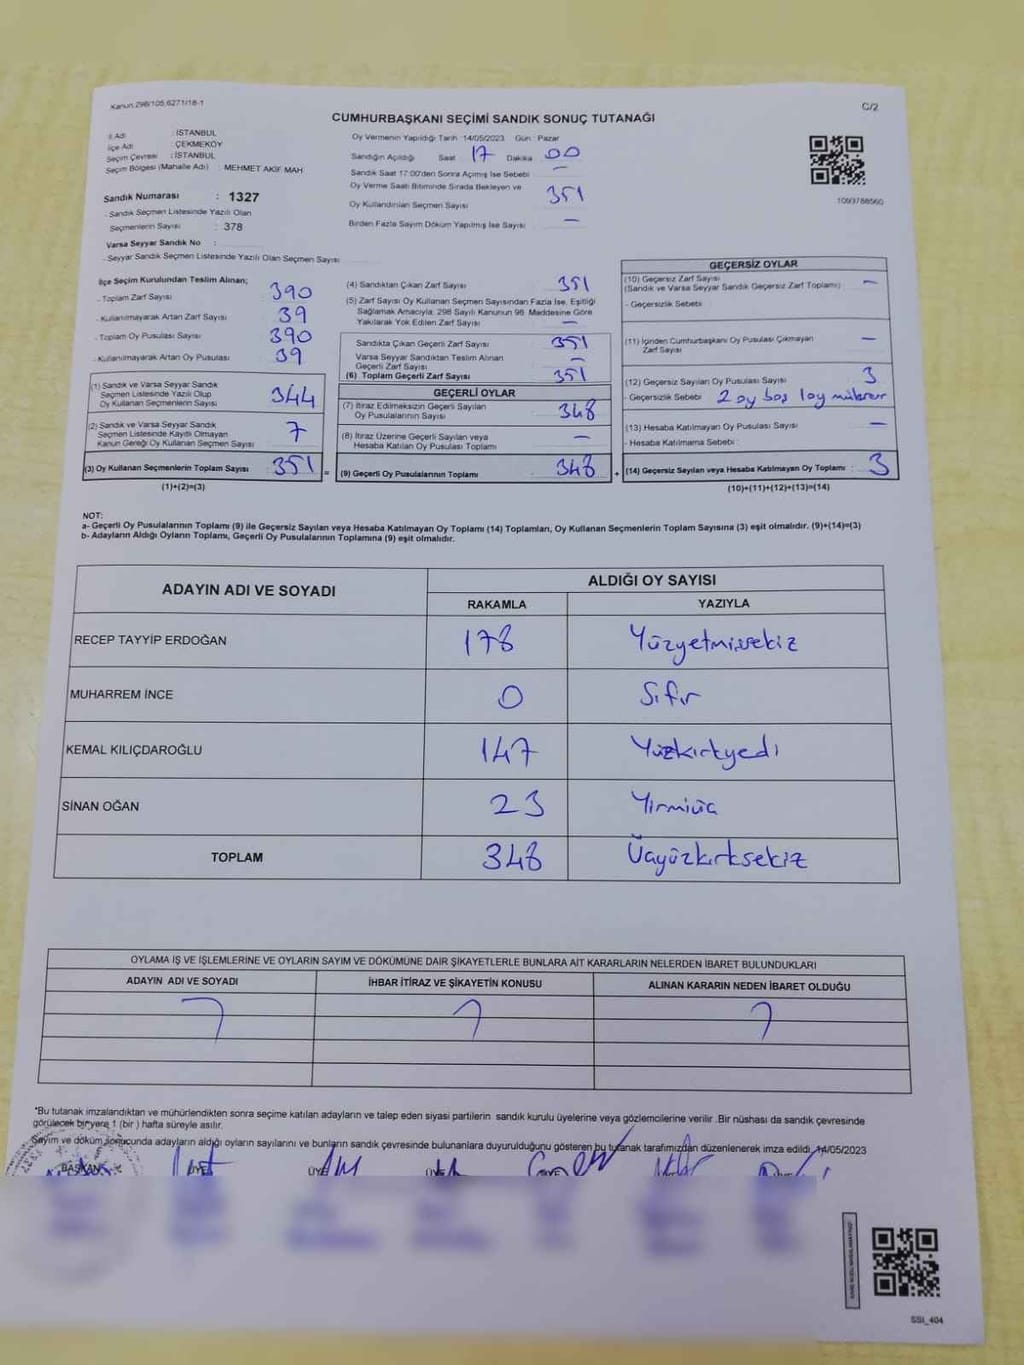 Kanun 298/105,6271/18-1
C/2
CUMHURBAŞKANI SEÇİMİ SANDIK SONUÇ TUTANAĞI
İl Adı : İSTANBUL
İlçe Adı : ÇEKMEKÖY
Seçim Çevresi : İSTANBUL
Seçim Bölgesi (Mahalle Adı) : MEHMET AKİF MAH
Sandık Numarası : 1327
- Sandık Seçmen Listesinde Yazılı Olan
Seçmenlerin Sayısı : 378
Varsa Seyyar Sandık No :
- Seyyar Sandık Seçmen Listesinde Yazılı Olan Seçmen Sayısı
Oy Vermenin Yapıldığı Tarih :14/05/2023 Gün : Pazar
Sandığın Açıldığı Saat 17 Dakika 00
Sandık Saat 17:00'den Sonra Açımış İse Sebebi –
Oy Verme Saati Bitiminde Sırada Bekleyen ve
Oy Kullandırılan Seçmen Sayısı 351
Birden Fazla Sayım Döküm Yapılmış İse Sayısı –
1093788560
İlçe Seçim Kurulundan Teslim Alınan;
- Toplam Zarf Sayısı 390
- Kullanılmayarak Artan Zarf Sayısı 39
- Toplam Oy Pusulası Sayısı 390
- Kullanılmayarak Artan Oy Pusulası 39
(1) Sandık ve Varsa Seyyar Sandık
Seçmen Listesinde Yazılı Olup
Oy Kullanan Seçmenlerin Sayısı 344
(2) Sandık ve Varsa Seyyar Sandık
Seçmen Listesinde Kayıtlı Olmayan
Kanun Gereği Oy Kullanan Seçmen Sayısı 7
(3) Oy Kullanan Seçmenlerin Toplam Sayısı 351 =
(1)+(2)=(3)
(4) Sandıktan Çıkan Zarf Sayısı 351
(5) Zarf Sayısı Oy Kullanan Seçmen Sayısından Fazla İse, Eşitliği
Sağlamak Amacıyla; 298 Sayılı Kanunun 98. Maddesine Göre
Yakılarak Yok Edilen Zarf Sayısı –
Sandıkta Çıkan Geçerli Zarf Sayısı 351
Varsa Seyyar Sandıktan Teslim Alınan
Geçerli Zarf Sayısı –
(6) Toplam Geçerli Zarf Sayısı 351
GEÇERLİ OYLAR
(7) İtiraz Edilmeksizin Geçerli Sayılan
Oy Pusulalarının Sayısı 348
(8) İtiraz Üzerine Geçerli Sayılan veya
Hesaba Katılan Oy Pusulası Sayısı –
(9) Geçerli Oy Pusulalarının Toplamı 348 +
GEÇERSİZ OYLAR
(10) Geçersiz Zarf Sayısı
(Sandık ve Varsa Seyyar Sandık Geçersiz Zarf Toplamı) –
- Geçersizlik Sebebi
(11) İçinden Cumhurbaşkanı Oy Pusulası Çıkmayan
Zarf Sayısı –
(12) Geçersiz Sayılan Oy Pusulası Sayısı 3
- Geçersizlik Sebebi 2 oy boş 1 oy mükerrer
(13) Hesaba Katılmayan Oy Pusulası Sayısı –
- Hesaba Katılmama Sebebi :
(14) Geçersiz Sayılan veya Hesaba Katılmayan Oy Toplamı : 3
(10)+(11)+(12)+(13)=(14)
NOT:
a- Geçerli Oy Pusulalarının Toplamı (9) ile Geçersiz Sayılan veya Hesaba Katılmayan Oy Toplamı (14) Toplamları, Oy Kullanan Seçmenlerin Toplam Sayısına (3) eşit olmalıdır. (9)+(14)=(3)
b- Adayların Aldığı Oyların Toplamı, Geçerli Oy Pusulalarının Toplamına (9) eşit olmalıdır.
ADAYIN ADI VE SOYADI
ALDIĞI OY SAYISI
RAKAMLA YAZIYLA
RECEP TAYYİP ERDOĞAN 178 Yüzyetmişsekiz
MUHARREM İNCE 0 Sıfır
KEMAL KILIÇDAROĞLU 147 Yüzkırkyedi
SİNAN OĞAN 23 Yirmiüç
TOPLAM 348 Üçyüzkırksekiz
OYLAMA İŞ VE İŞLEMLERİNE VE OYLARIN SAYIM VE DÖKÜMÜNE DAİR ŞİKAYETLERLE BUNLARA AİT KARARLARIN NELERDEN İBARET BULUNDUKLARI
ADAYIN ADI VE SOYADI İHBAR İTİRAZ VE ŞİKAYETİN KONUSU ALINAN KARARIN NEDEN İBARET OLDUĞU
"Bu tutanak imzalandıktan ve mühürlendikten sonra seçime katılan adayların ve talep eden siyasi partilerin sandık kurulu üyelerine veya gözlemcilerine verilir. Bir nüshası da sandık çevresinde
görülecek bir yere 1 (bir ) hafta süreyle asılır.
Sayım ve döküm sonucunda adayların aldığı oyların sayılarını ve bunların sandık çevresinde bulunanlara duyurulduğunu gösteren bu tutanak tarafımızdan düzenlenerek imza edildi. 14/05/2023
BAŞKAN ÜYE ÜYE ÜYE
SSI_404